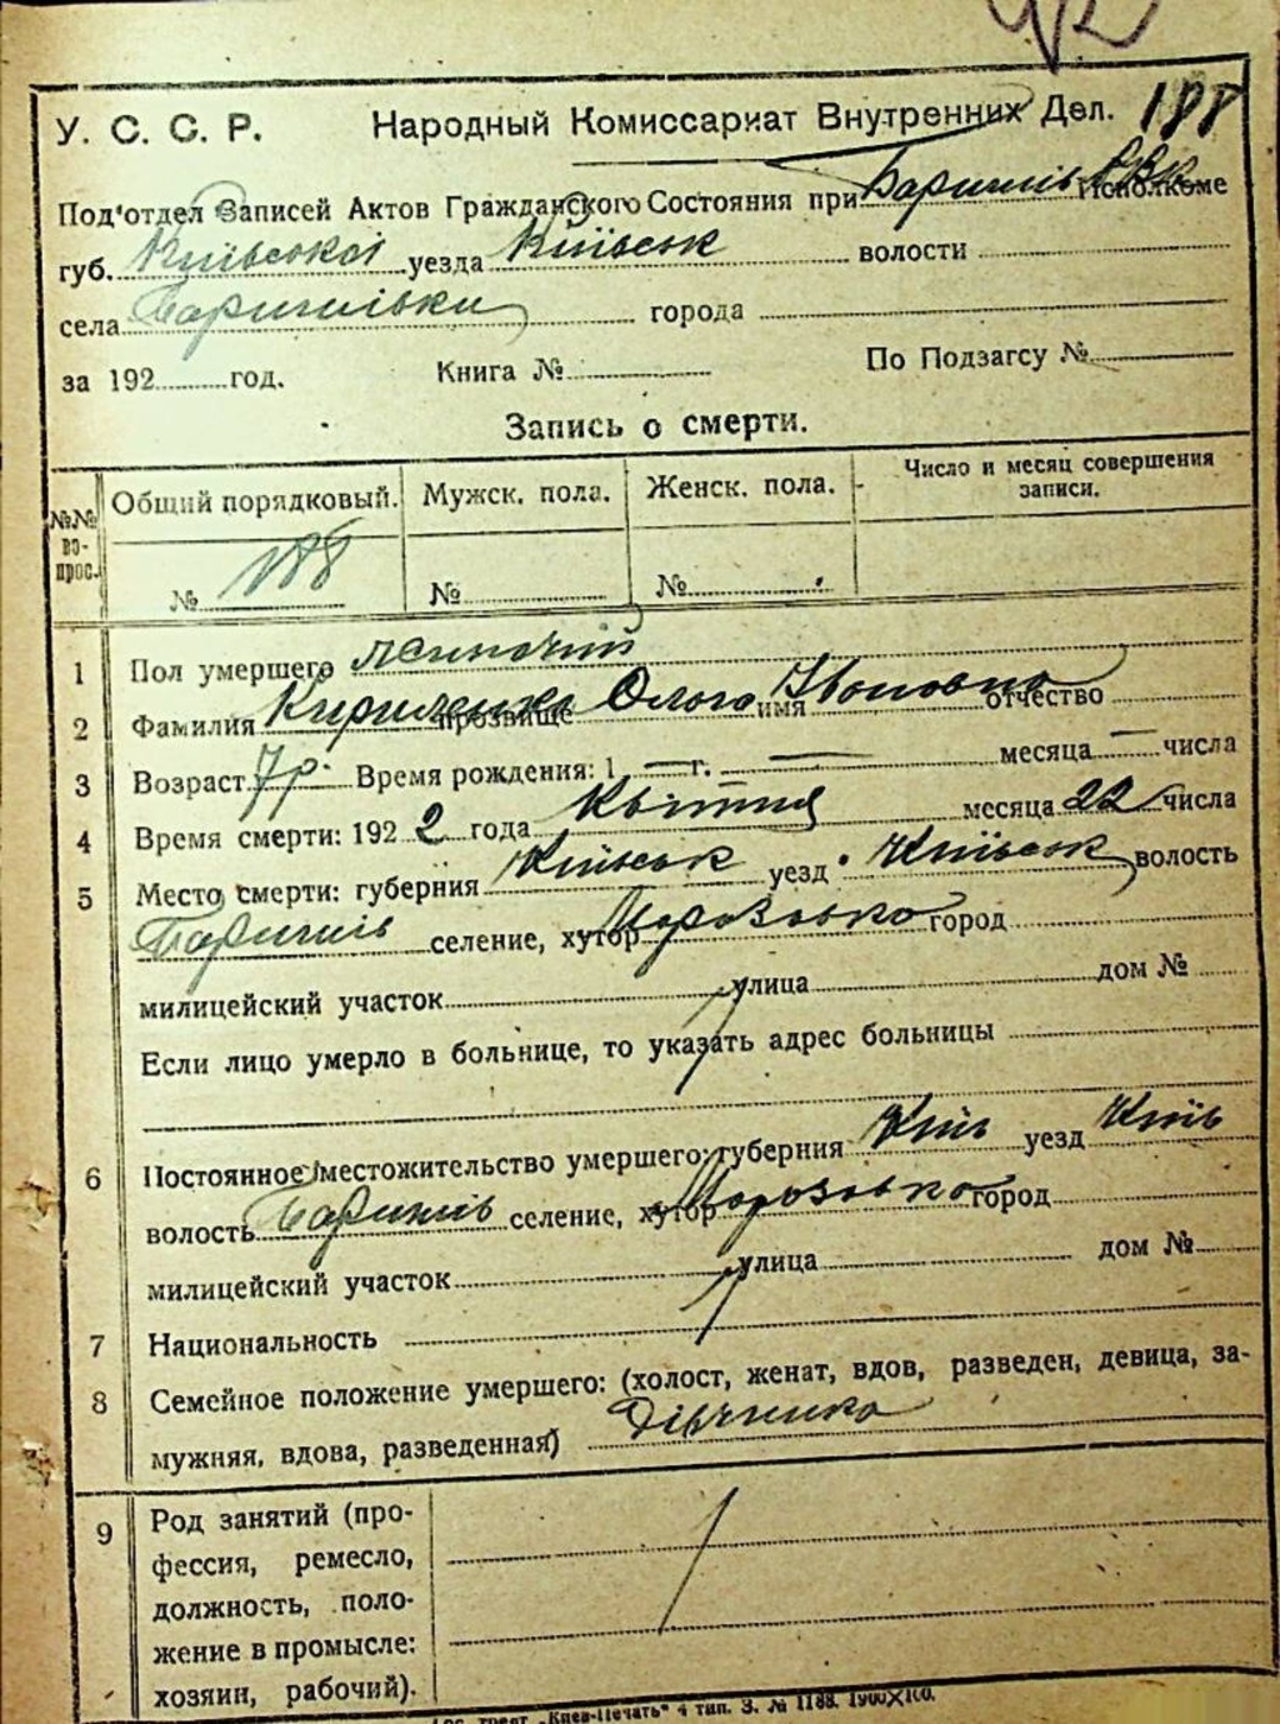 У. С. С. Р. Народный Комиссариат Внутренних Дел. 188
Под'отдел Записей Актов Гражданского Состояния при Баришів РВК Исполкоме
губ. Київської уезда Київськ волости
села Баришівки города
за 192 год. Книга № По Подзагсу №
Запись о смерти.
№№ вопрос. Общий порядковый. Мужск. пола. Женск. пола. Число и месяц совершения записи.
№ 188 № №
1 Пол умершего жиночий
2 Фамилия Кириленко прозвище Ольга имя Івановна отчество
3 Возраст 7 р. Время рождения: 1 — г. — месяца — числа
4 Время смерти: 192 2 года Квітня месяца 22 числа
5 Место смерти: губерния Київськ уезд Київськ волость
Баришів селение, хутор Морозовка город
милицейский участок улица дом №
Если лицо умерло в больнице, то указать адрес больницы
6 Постоянное местожительство умершего: губерния Київ уезд Київ
волость Баришів селение, хутор Морозовка город
милицейский участок улица дом №
7 Национальность
8 Семейное положение умершего: (холост, женат, вдов, разведен, девица, за-
мужняя, вдова, разведенная) Дівчинка
9 Род занятий (про-
фессия, ремесло,
должность, поло-
жение в промысле:
хозяин, рабочий).
трест „Киев-Печать" 4 тип. З. № 1188. 1900×100.